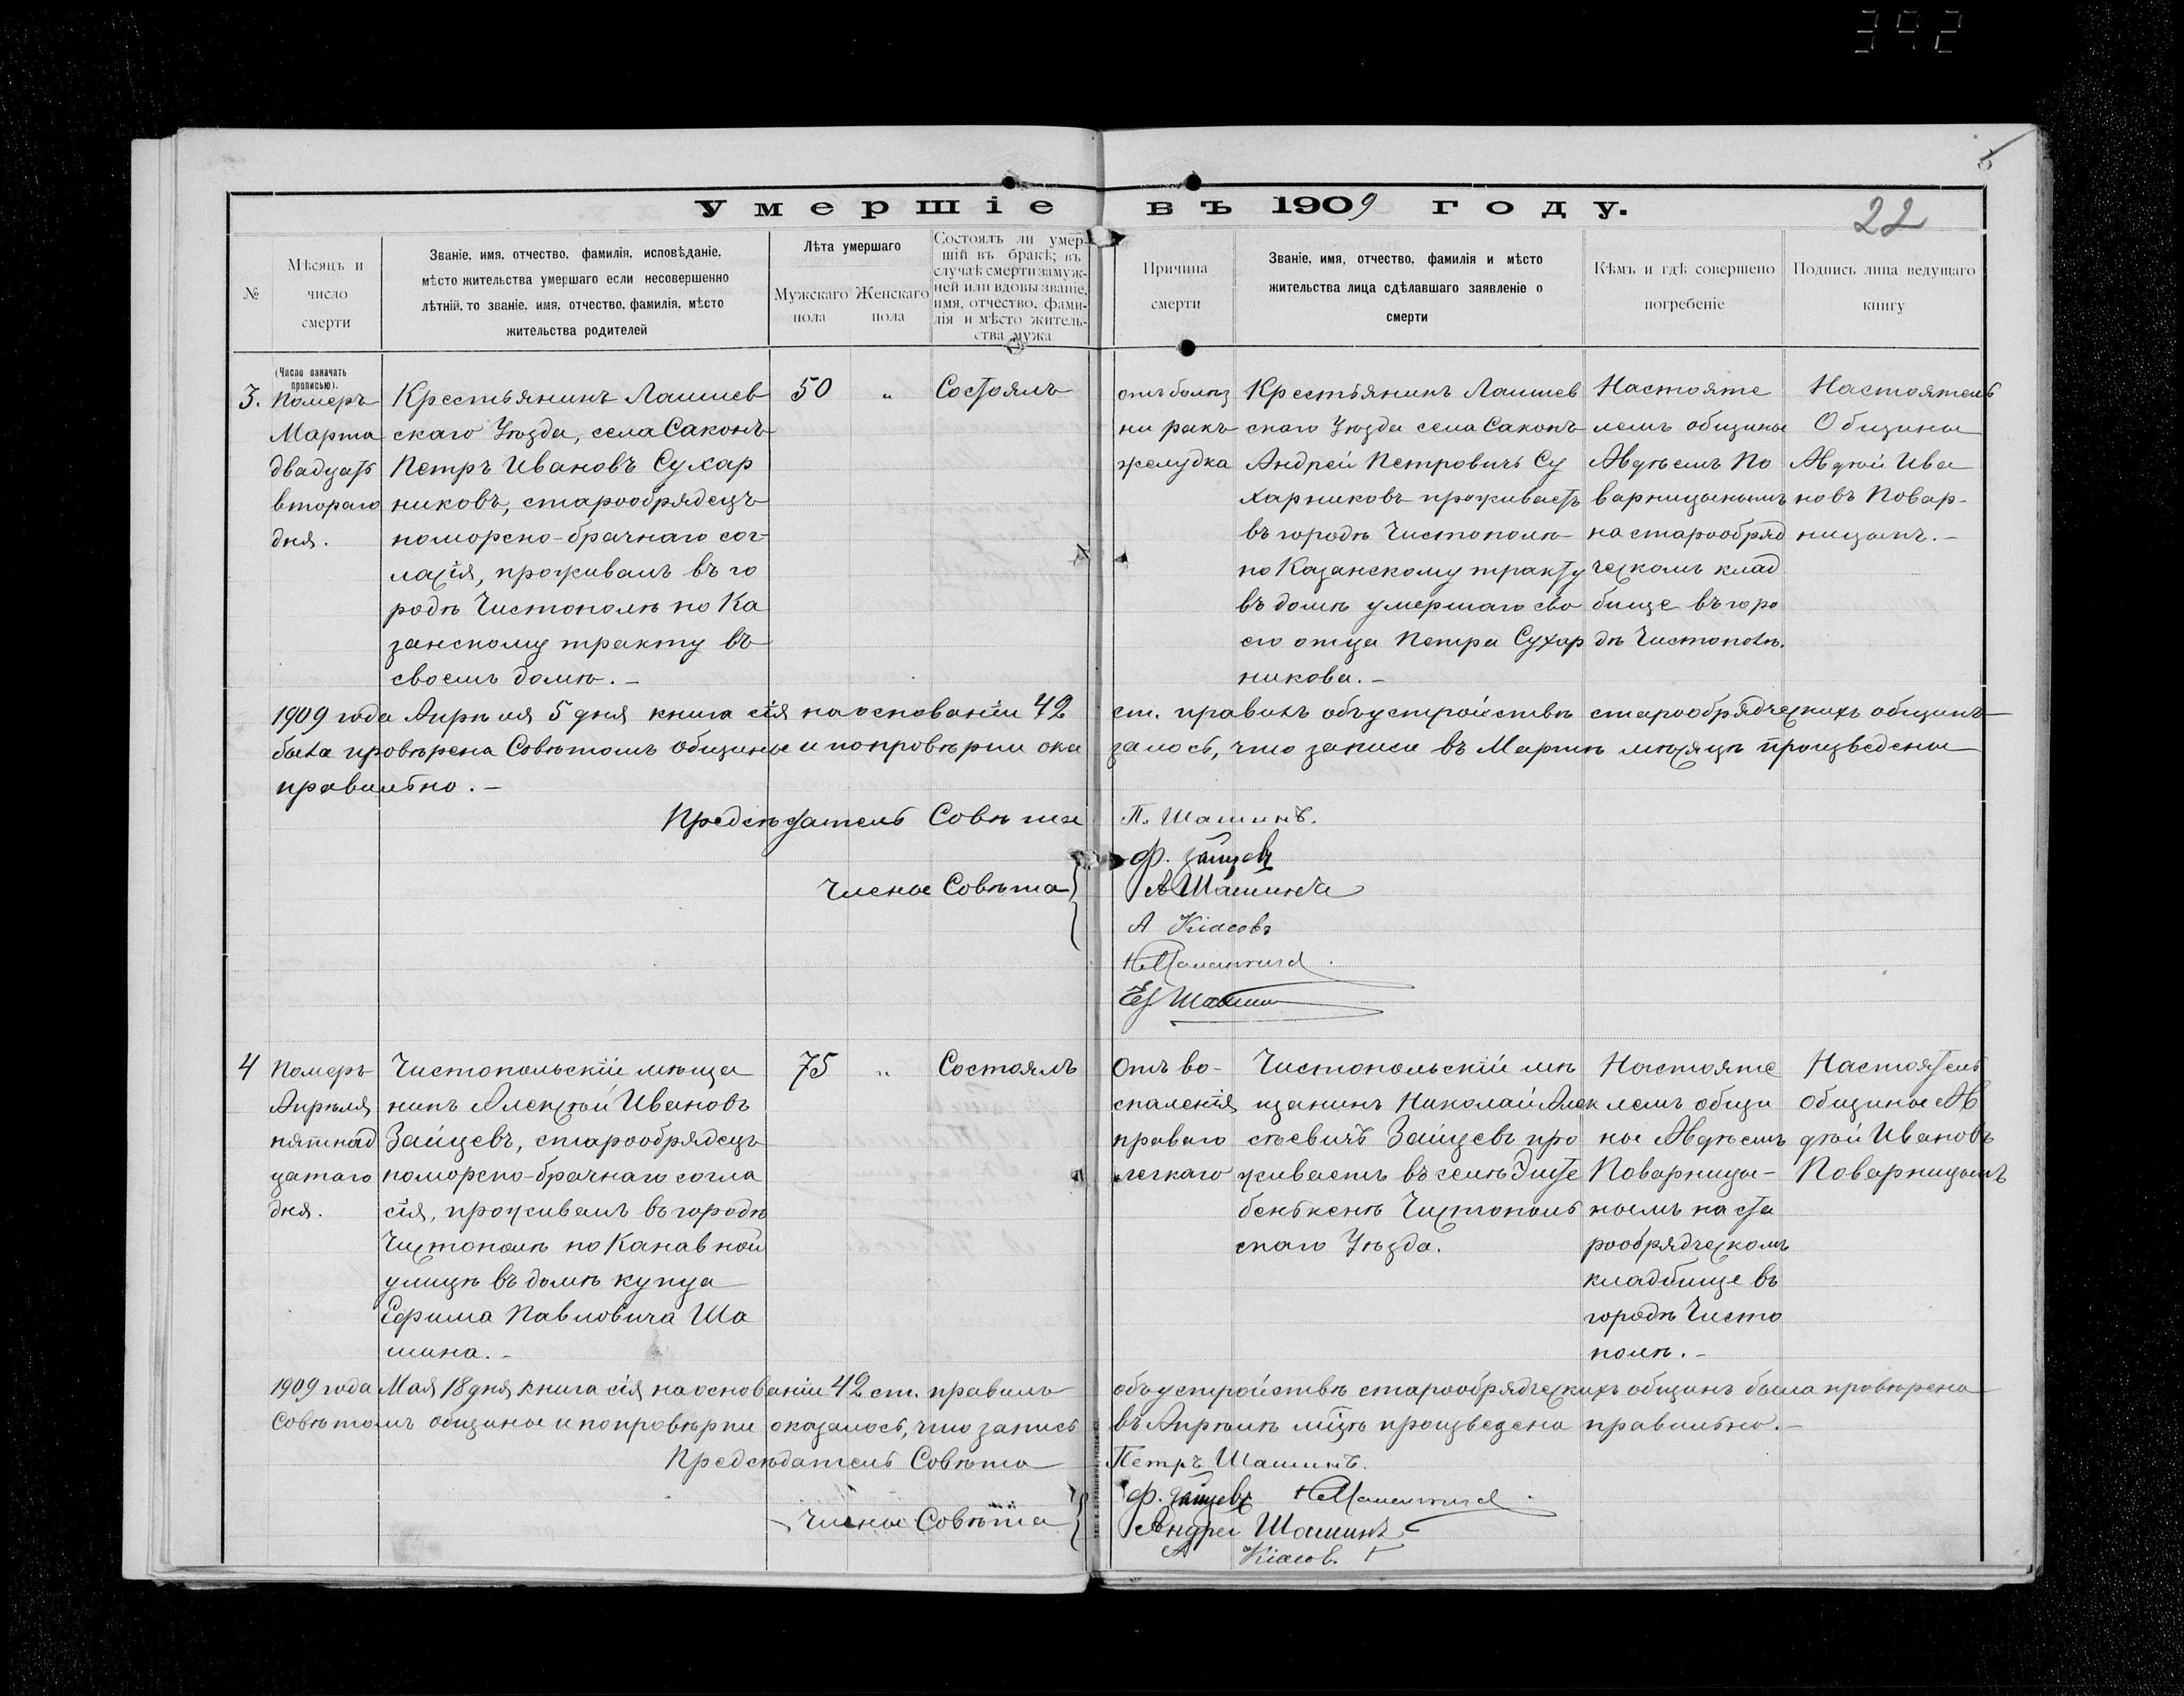 392
5
Умершіе въ 1909 году.
22
№
Мѣсяцъ и
число
смерти
Званіе, имя, отчество, фамилія, исповѣданіе,
мѣсто жительства умершаго если несовершенно
лѣтній, то званіе, имя, отчество, фамилія, мѣсто
жительства родителей
Лѣта умершаго
Мужскаго
пола
Женскаго
пола
Состоялъ ли умер-
шій въ бракѣ; въ
случаѣ смерти замуж-
ней или вдовы званіе,
имя, отчество, фами-
лія и мѣсто житель-
ства мужа
Причина
смерти
Званіе, имя, отчество, фамилія и мѣсто
жительства лица сдѣлавшаго заявленіе о
смерти
Кѣмъ и гдѣ совершено
погребеніе
Подпись лица ведущаго
книгу
(Число означать
прописью).
3.
Померъ
Марта
двадцать
втораго
дня.
Крестьянинъ Лаишев
скаго Уѣзда, села Саконъ
Петръ Ивановъ Сухар
никовъ, старообрядецъ
поморско-брачнаго сог-
ласія, проживалъ въ го
родѣ Чистополѣ по Ка
занскому тракту въ
своемъ домѣ. –
50
„
Состоялъ
отъ болѣз
ни ракъ
желудка
Крестьянинъ Лаишев
скаго Уѣзда села Саконъ
Андрей Петровичъ Су
харниковъ проживаетъ
въ городѣ Чистополѣ
по Казанскому тракту
въ домѣ умершаго сво
его отца Петра Сухар
никова. –
Настояте
лемъ общины
Авдѣемъ По
варницынымъ
на старообряд
ческомъ клад
бище въ горо
дѣ Чистополѣ.
Настоятель
Общины
Авдѣй Ива
новъ Повар-
ницынъ. –
1909 года Апрѣля 5 дня книга сія на основаніи 42 ст. правилъ объ устройствѣ старообрядческихъ общинъ
была провѣрена Совѣтомъ общины и по провѣрки ока залось, что записи въ Мартѣ мѣсяцѣ произведены
правильно. –
Предсѣдатель Совѣта П. Шашинъ.
Ф. Зайцевъ
Члены Совѣта
А Шашинъ
А Кіасовъ
Еф Шашин
4
Померъ
Апрѣля
пятнад
цатаго
дня.
Чистопольскій мѣща
нинъ Алексѣй Ивановъ
Зайцевъ, старообрядецъ
поморско-брачнаго согла
сія, проживалъ въ городѣ
Чистополѣ по Канавной
улицѣ въ домѣ купца
Ефима Павловича Ша
шина. –
75
„
Состоялъ
Отъ во-
спаленія
праваго
легкаго
Чистопольскій мѣ
щанинъ Николай Алек
сѣевичъ Зайцевъ про
живаетъ въ селѣ
Чистополь
скаго Уѣзда.
Настояте
лемъ общи
ны Авдѣемъ
Поварницы-
нымъ на ста
рообрядческомъ
кладбище въ
городѣ Чисто
полѣ. –
Настоятель
общины Ав
дѣй Ивановъ
Поварницынъ
1909 года Мая 18 дня книга сія на основаніи 42 ст. правилъ объ устройствѣ старообрядческихъ общинъ была провѣрена
Совѣтомъ общины и по провѣрки оказалось, что запись въ Апрѣлѣ мцѣ произведена правильно. –
Предсѣдатель Совѣта Петръ Шашинъ.
Ф. Зайцевъ
Члены Совѣта
Андрей Шашинъ
А Кіасов.